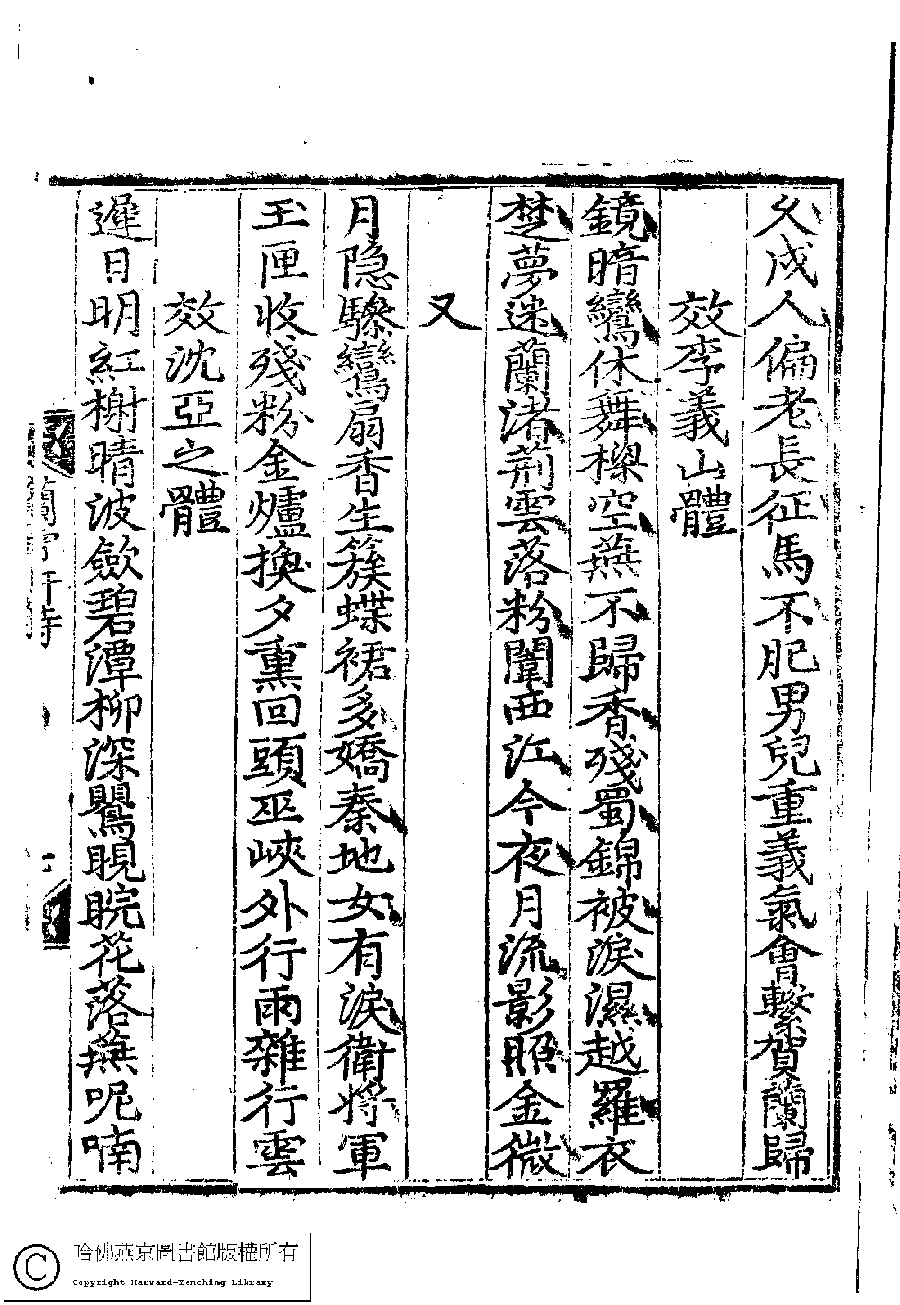 久戍人偏老長征馬不肥男兒重義氣會繫賀蘭歸
效李義山體
鏡暗鸞休舞樑空燕不歸香殘蜀錦被淚濕越羅衣
楚夢迷蘭渚荊雲落粉闈西江今夜月流影照金微
又
月隐驂鸞扇香生簇蝶裙多嬌秦地女有淚衛將軍
玉匣收殘粉金爐換夕熏回頭巫峽外行雨雜行雲
效沈亞之體
遲日明紅榭晴波斂碧潭柳深鸎睍睆花落燕呢喃
蘭雪軒詩
哈佛燕京圖書館版權所有
Copyright Harvard-Yenching Library